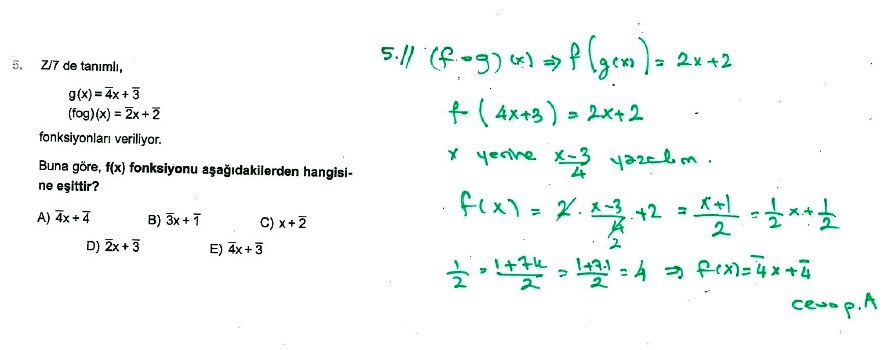 5. Z/7 de tanımlı,
g(x) = 4̅x + 3̅
(fog)(x) = 2̅x + 2̅
fonksiyonları veriliyor.
Buna göre, f(x) fonksiyonu aşağıdakilerden hangisi-
ne eşittir?
A) 4̅x + 4̅ B) 3̅x + 1̅ C) x + 2̅
D) 2̅x + 3̅ E) 4̅x + 3̅
5.// (fog)(x) ⇒ f(g(x)) = 2x+2
f(4x+3) = 2x+2
x yerine (x-3)/4 yazalım.
f(x) = 2 · (x-3)/4 + 2 = (x+1)/2 = 1/2 x + 1/2
2
1/2 = (1+7k)/2 = (1+7.1)/2 = 4 ⇒ f(x) = 4̅x + 4̅
cevap. A